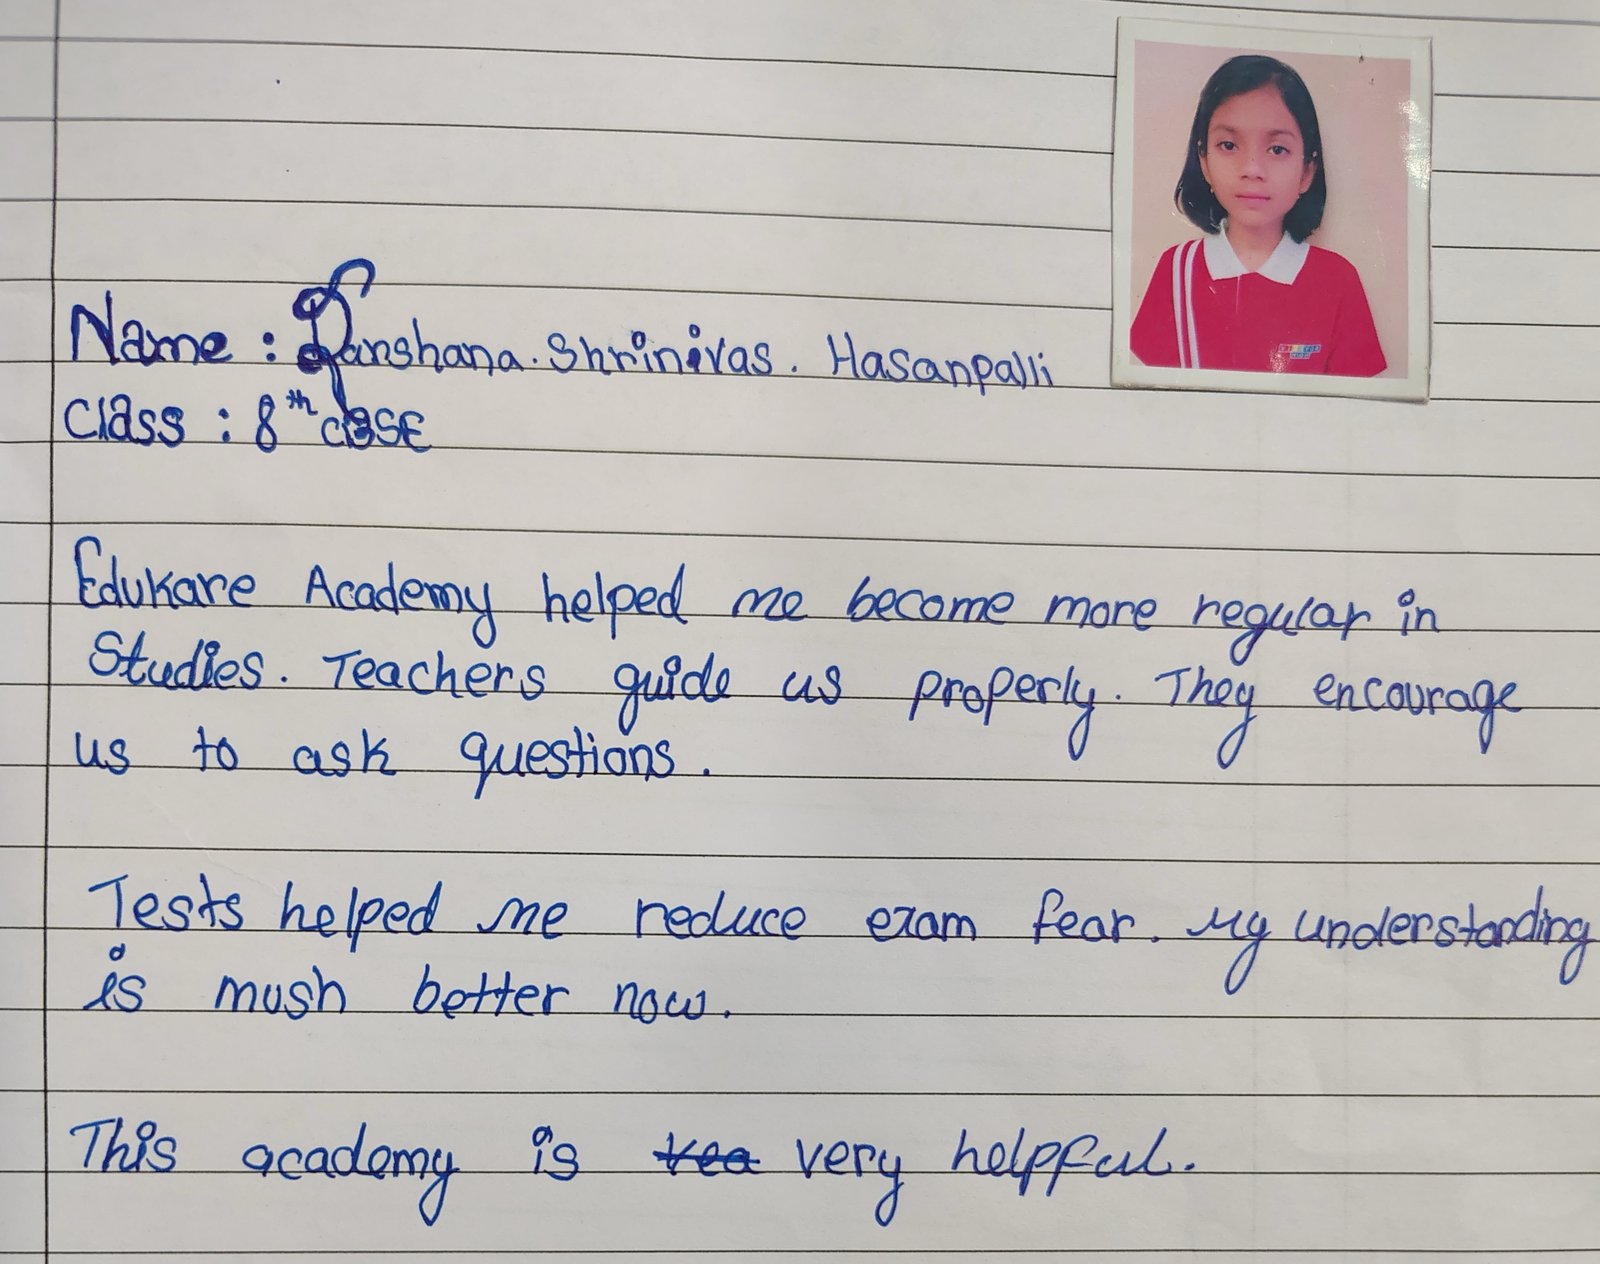 Name : Danshana. Shrinivas. Hasanpalli
Class : 8th CBSE
Edukare Academy helped me become more regular in
Studies. Teachers guide us properly. They encourage
us to ask questions.
Tests helped me reduce exam fear. My understanding
is mush better now.
This academy is very helpful.